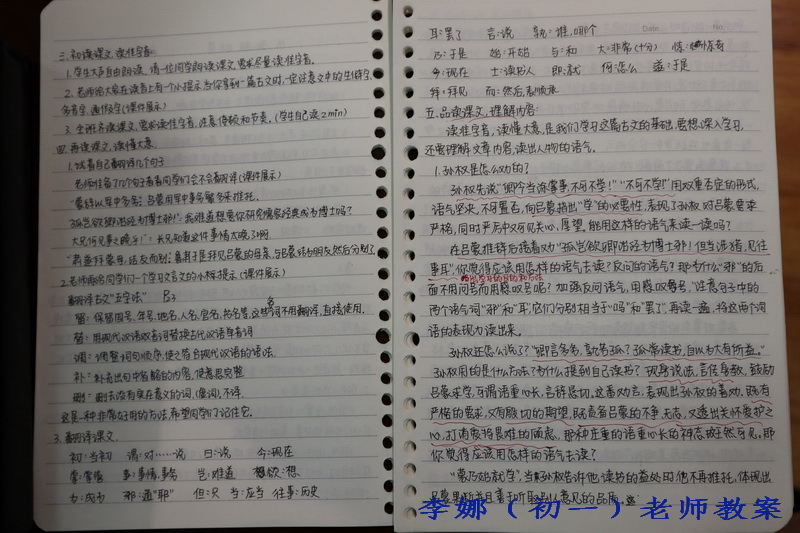 三.初读课文,读准字音.
1.学生大声自由朗读,请一位同学朗读课文,要求尽量读准字音.
2.老师给大家在读音上有一个小提示:当你拿到一篇古文时,一定注意文中的生僻字,
多音字,通假字(课件展示)
3.全班齐读课文,要求读准字音,注意停顿和节奏.(学生自己读2min)
四.再读课文,读懂大意.
1.试着自己翻译几个句子
老师准备了几个句子看看同学们会不会翻译(课件展示)
"蒙辞以军中多务:吕蒙用军中事务繁多来推托.
孤岂欲卿治经为博士邪!:我难道想要你研究儒家经典成为博士吗?
大兄何见事之晚乎!":长兄知晓这件事情太晚了啊
"肃遂拜蒙母,结友而别:鲁肃于是拜见吕蒙的母亲,与吕蒙结为朋友然后分别了
2.老师再给同学们一个学习文言的小提示(课件展示)
翻译古文"五字法" P3
留:保留国号,年号,地名,人名,官名,书名等,这些词不用翻译,直接使用.
替:用现代汉语双音词替换古代汉语单音词
调:调整词句顺序,使之符合现代汉语的语法.
补:补充出句中省略的内容,使意思完整
删:删去没有实在意义的词,(虚词)不译.
这是一种非常好用的方法,希望同学们记住它.
3.翻译课文.
初:当初 谓:对……说 曰:说 今:现在
掌:掌管 事:事情,事务 岂:难道 欲:想
为:成为 邪:通"耶" 但:只 当:应当 往事:历史
耳:罢了 言:说 孰:谁,哪个
乃:于是 始:开始 与:和 大:非常(十分) 惊:惊奇
今:现在 士:读书人 即:就 何:怎么 遂:于是
拜:拜见 而:然后,表顺承
五.品读课文,理解内容:
读准字音,读懂大意,是我们学习这篇古文的基础,要想深入学习,
还要理解文章内容,读出人物的语气.
1.孙权是怎么劝的?
孙权先说"卿今当涂掌事,不可不学!""不可不学!"用双重否定的形式,
语气坚决,不可置否,向吕蒙指出"学"的必要性,表现了孙权对吕蒙要求
严格,同时严厉中又可见关心,厚望,能用这样的语气来读一读吗?
在吕蒙推辞后接着劝"孤岂欲卿治经为博士邪!但当涉猎,见往
事耳"你觉得应该用怎样的语气去读?反问的语气?那为什么"邪"的后
面不用问号而用感叹号呢?加强反问语气,用感叹号,注意句子中的
两个语气词"邪"和"耳",它们分别相当于"吗"和"罢了",再读一遍,将这两个词
语的表现力读出来.
孙权还怎么说了?"卿言多务,孰若孤?孤常读书,自以为大有所益."
孙权用的是什么方法?为什么提到自己读书?现身说法,言传身教,鼓励
吕蒙求学,可谓语重心长,言辞恳切,这番劝言,表现出孙权的善劝,既有
严格的要求,又有殷切的期望,既责备吕蒙的不争
又透出关怀爱护之
心,打消蒙将畏难的顾虑,那种庄重的语重心长的神态跃然可见.那
你觉得应该用怎样的语气去读?
"蒙乃始就学",当孙权告诉他读书的益处时他不再推托,体现出
李娜(初一)老师教案